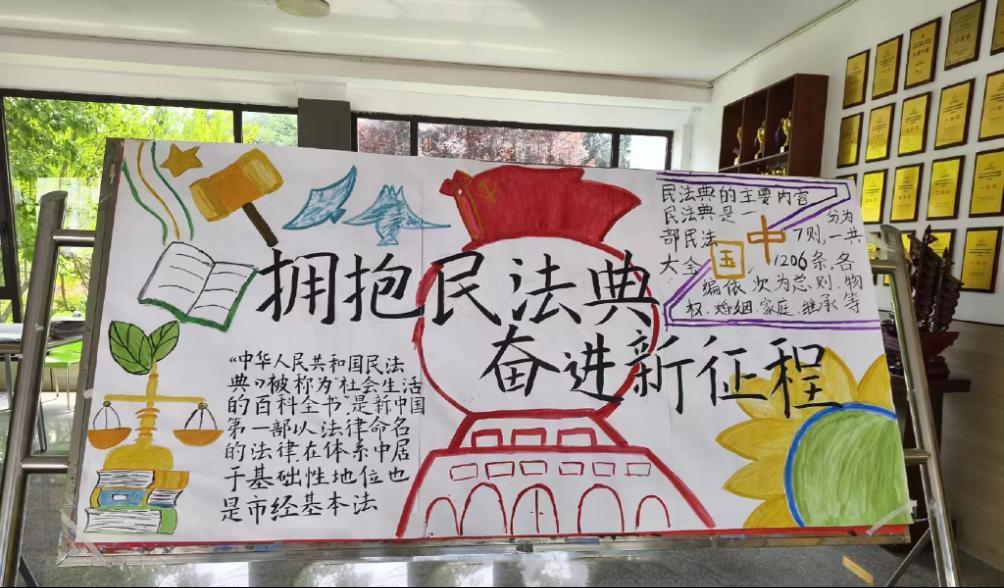 拥抱民法典
奋进新征程
"中华人民共和国民法
典》被称为"社会生活
的百科全书"是新中国
第一部以法律命名
的法律在体系中居
于基础性地位也
是市经基本法
民法典的主要内容
民法典是一 分为
部民法 中 7则,一共
大全 国 1206条,各
编依次为总则、物
权、婚姻、家庭、继承等